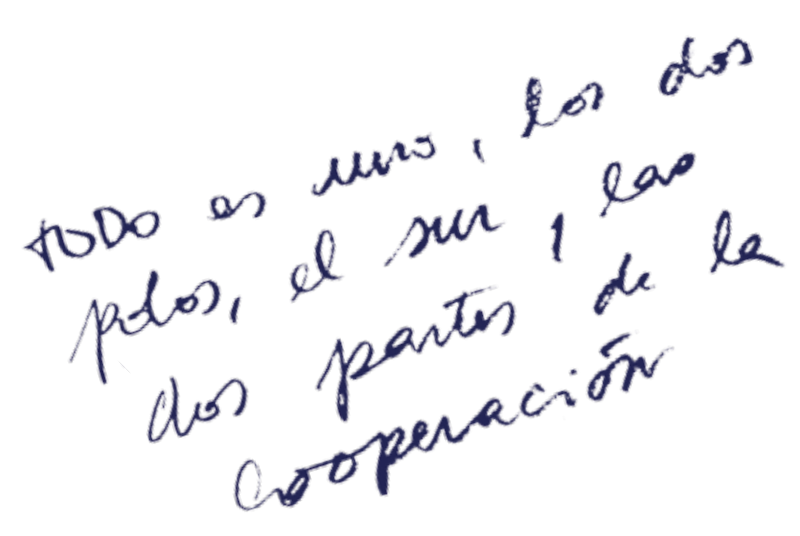 TODO es uno, los dos
polos, el sur, las
dos partes de la
cooperación